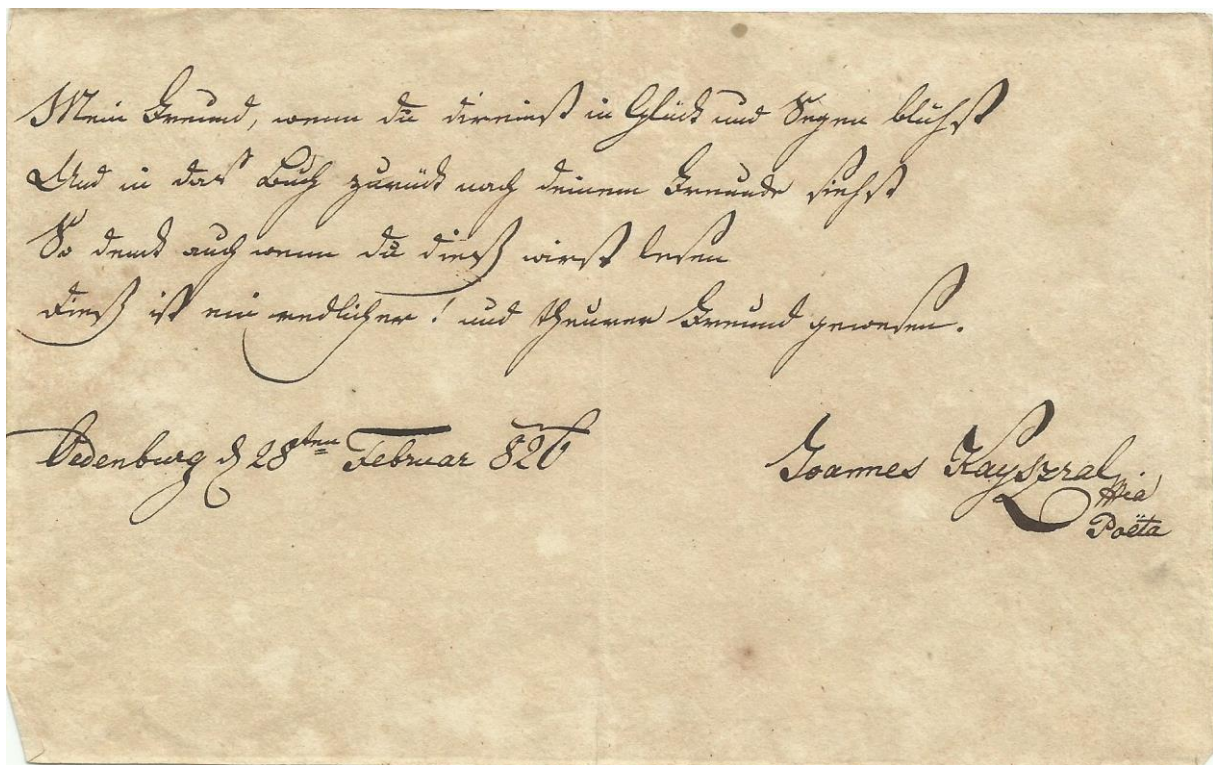 Mein Freund, wenn du dereinst in Glück und Segen blühst
Und in das Buch zurück nach deinem Freunde siehst
So denck auch wenn du dieß wirst lesen
dieß ist ein redlicher! und theurer Freund gewesen.
Oedenburg d 28ten Februar 826
Joannes Kayszral
Poëta